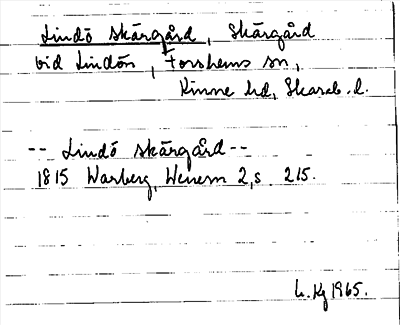 Lindö skärgård, Skärgård
vid Lindön, Forshems sn,
Kinne hd, Skarab. l.
-- Lindö skärgård --
1815 Warberg, Wenern 2, s. 215.
L. Kg 1965.